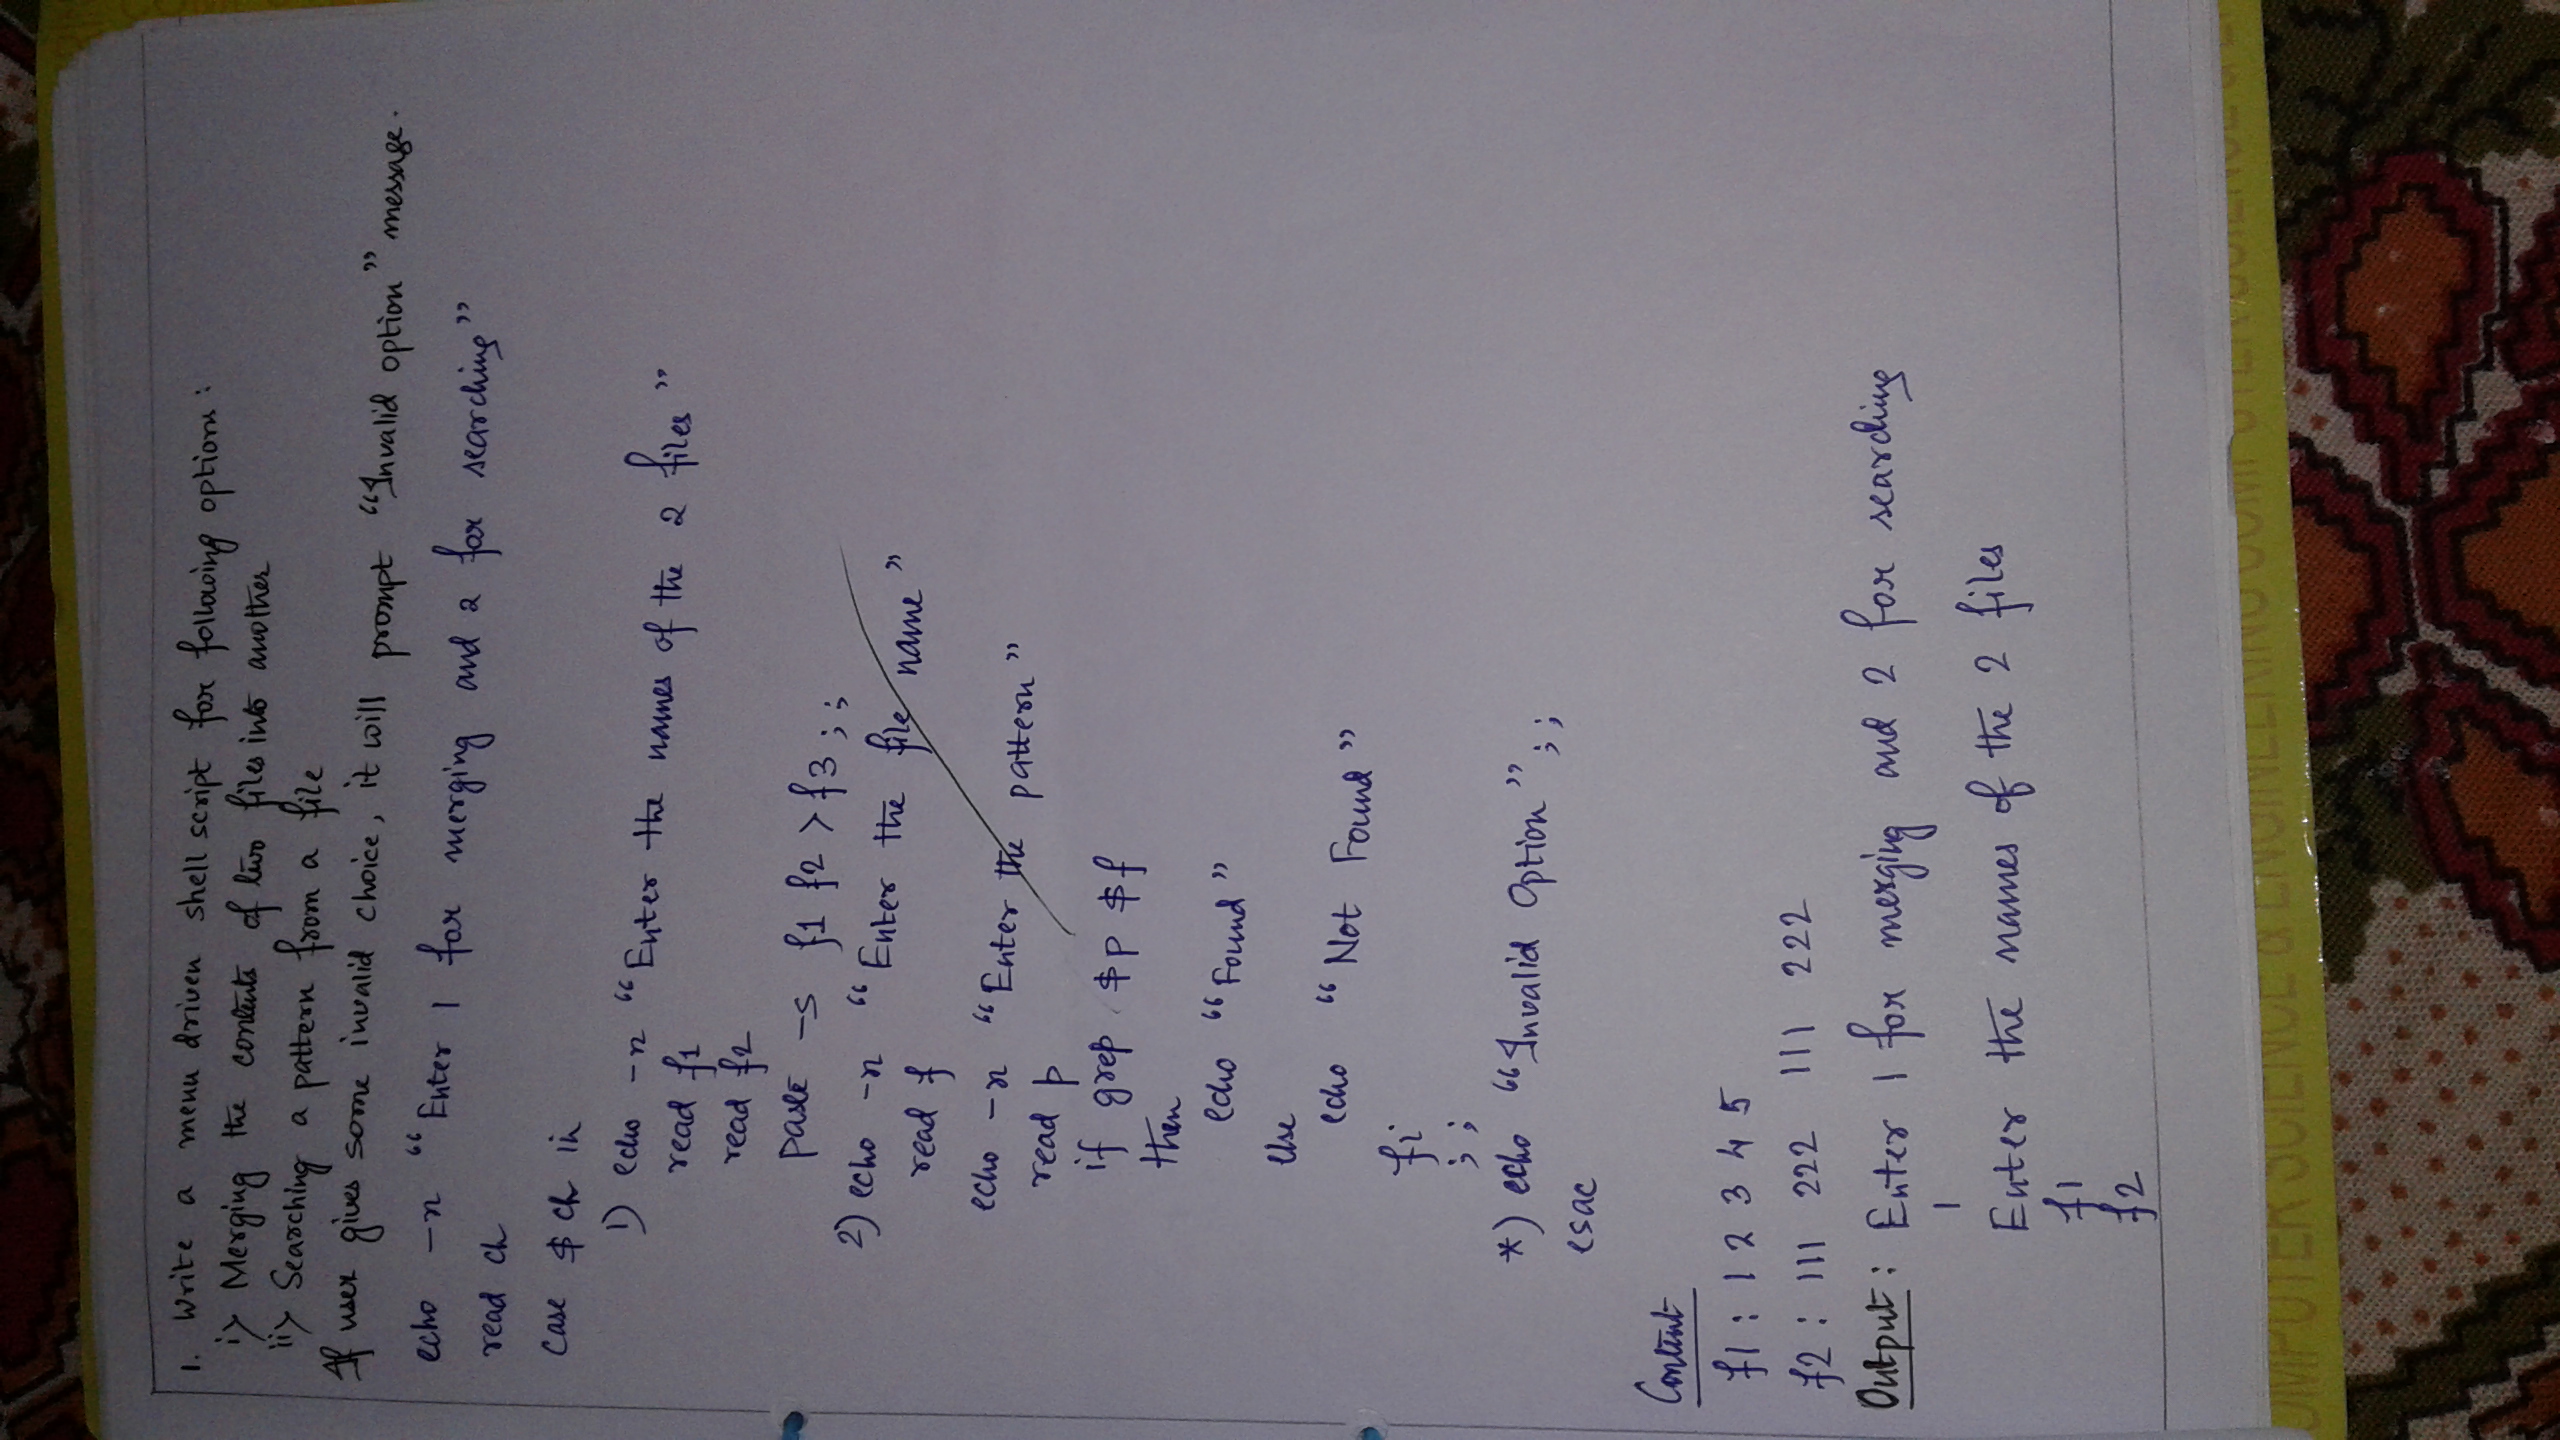 1. Write a menu driven shell script for following options :
i> Merging the contents of two files into another
ii> Searching a pattern from a file
If user gives some invalid choice, it will prompt "Invalid option" message.
echo -n "Enter 1 for merging and 2 for searching"
read ch
case $ ch in
1) echo -n "Enter the names of the 2 files"
read f1
read f2
paste -s f1 f2 > f3 ; ;
2) echo -n "Enter the file name"
read f
echo -n "Enter the pattern"
read p
if grep $p $f
then
echo "Found"
else
echo "Not Found"
fi
; ;
*) echo "Invalid Option" ; ;
esac
Content
f1 : 1 2 3 4 5
f2 : 111 222 111 222
Output : Enter 1 for merging and 2 for searching
1
Enter the names of the 2 files
f1
f2
COMPUTER SCIENCE & ENGINEERING COMPUTER SCIENCE & E